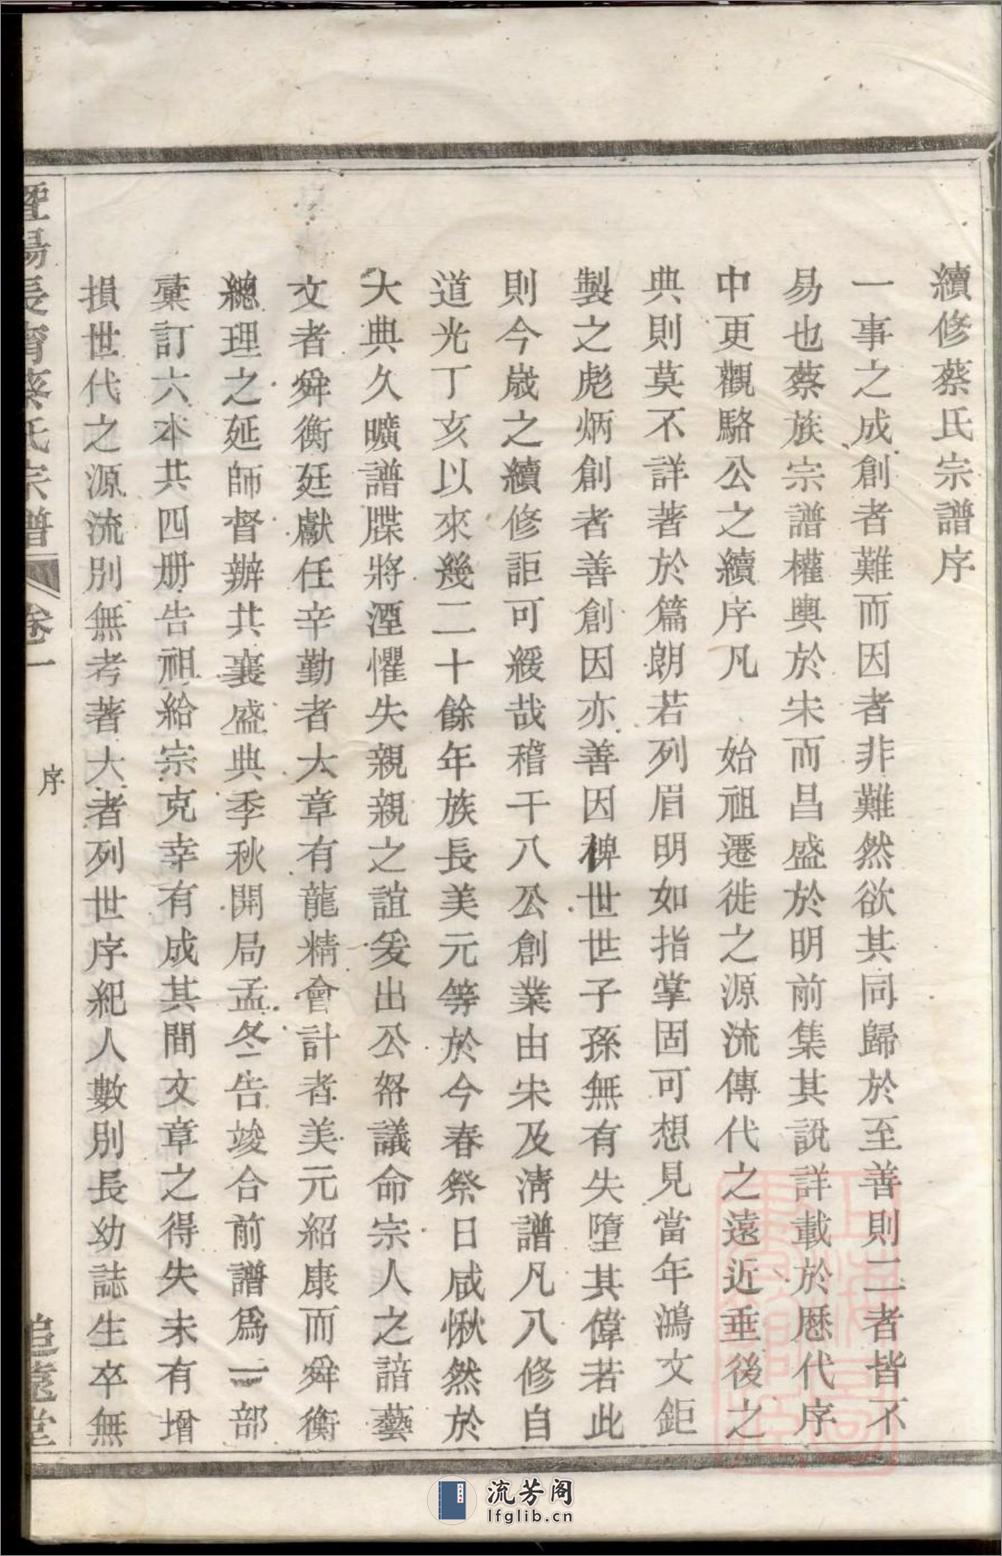 續修蔡氏宗譜序
一事之成創者難而因者非難然欲其同歸於至善則二者皆不
易也蔡族宗譜權輿於宋而昌盛於明前集其說詳載於歷代序
中更觀駱公之續序凡 始祖遷徙之源流傳代之遠近垂後之
典則莫不詳著於篇朗若列眉明如指掌固可想見當年鴻文鉅
製之彪炳創者善創因亦善因俾世世子孫無有失墮其偉若此
則今歲之續修詎可緩哉稽千八公創業由宋及淸譜凡八修自
道光丁亥以來幾二十餘年族長美元等於今春祭日咸愀然於
大典久曠譜牒將湮懼失親親之誼爰出公帑議命宗人之諳藝
文者舜衡廷獻任辛勤者大章有龍精會計者美元紹康而舜衡
總理之延師督辦共襄盛典季秋開局孟冬告竣合前譜爲一部
彙訂六本共四册告祖給宗克幸有成其間文章之得失未有增
損世代之源流別無考著大者列世序紀人數別長幼誌生卒無
暨陽長甯蔡氏宗譜 卷一 序 追遠堂
流芳阁
lfglib.cn